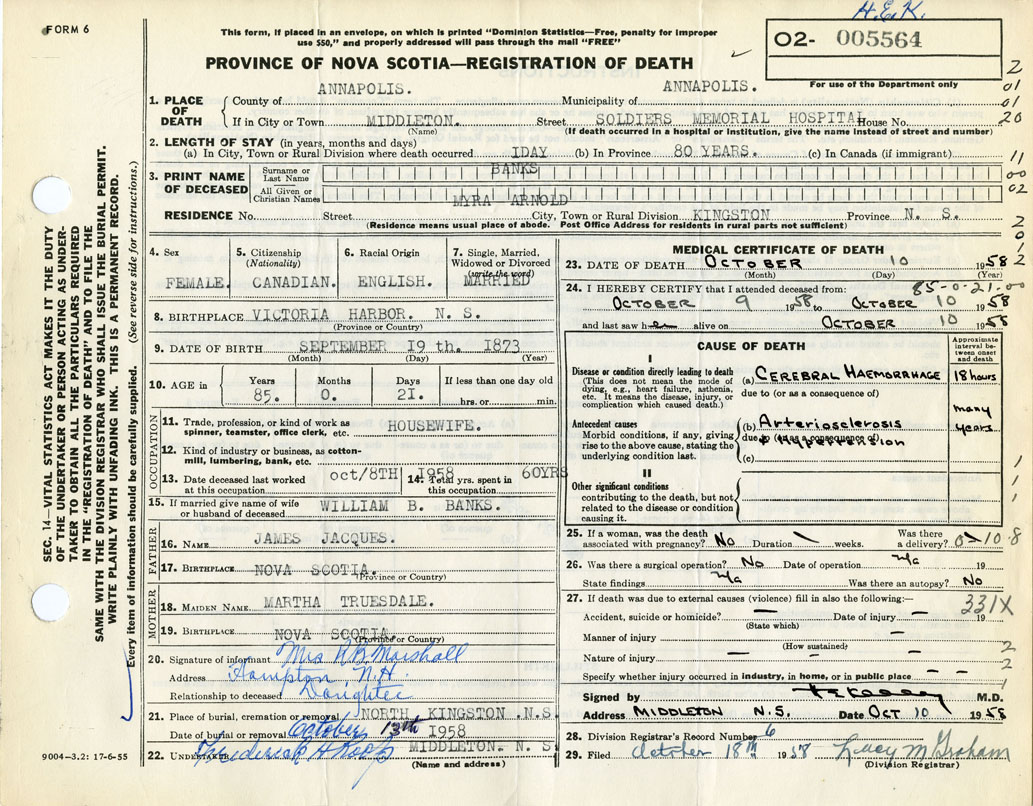 FORM 6
H.E.K.
This form, if placed in an envelope, on which is printed "Dominion Statistics—Free, penalty for improper
use $50," and properly addressed will pass through the mail "FREE"
O2- 005564
For use of the Department only
PROVINCE OF NOVA SCOTIA—REGISTRATION OF DEATH
1. PLACE OF DEATH
County of ANNAPOLIS. Municipality of ANNAPOLIS.
If in City or Town MIDDLETON. Street SOLDIERS MEMORIAL HOSPITAL House No.
(Name) (If death occurred in a hospital or institution, give the name instead of street and number)
2. LENGTH OF STAY (in years, months and days)
(a) In City, Town or Rural Division where death occurred 1DAY (b) In Province 80 YEARS. (c) In Canada (if immigrant)
3. PRINT NAME OF DECEASED
Surname or Last Name BANKS
All Given or Christian Names MYRA ARNOLD
RESIDENCE No. Street City, Town or Rural Division KINGSTON Province N. S.
(Residence means usual place of abode. Post Office Address for residents in rural parts not sufficient)
2
01
01
20
11
00
02
2
0
1
2
SEC. 14—VITAL STATISTICS ACT MAKES IT THE DUTY
OF THE UNDERTAKER OR PERSON ACTING AS UNDER-
TAKER TO OBTAIN ALL THE PARTICULARS REQUIRED
IN THE "REGISTRATION OF DEATH" AND TO FILE THE
SAME WITH THE DIVISION REGISTRAR WHO SHALL ISSUE THE BURIAL PERMIT.
WRITE PLAINLY WITH UNFADING INK. THIS IS A PERMANENT RECORD.
Every item of information should be carefully supplied. (See reverse side for instructions.)
4. Sex
FEMALE.
5. Citizenship
(Nationality)
CANADIAN.
6. Racial Origin
ENGLISH.
7. Single, Married,
Widowed or Divorced
(write the word)
MARRIED
8. BIRTHPLACE VICTORIA HARBOR. N. S.
(Province or Country)
9. DATE OF BIRTH SEPTEMBER 19 th. 1873
(Month) (Day) (Year)
10. AGE in
Years Months Days If less than one day old
85. 0. 21. hrs. or min.
OCCUPATION
11. Trade, profession, or kind of work as
spinner, teamster, office clerk, etc. HOUSEWIFE.
12. Kind of industry or business, as cotton-
mill, lumbering, bank, etc.
13. Date deceased last worked
at this occupation oct/8TH 1958
14. Total yrs. spent in
this occupation 60YRS
15. If married give name of wife
or husband of deceased WILLIAM B. BANKS.
FATHER
16. NAME JAMES JACQUES.
17. BIRTHPLACE NOVA SCOTIA.
(Province or Country)
MOTHER
18. MAIDEN NAME MARTHA TRUESDALE.
19. BIRTHPLACE NOVA SCOTIA.
(Province or Country)
20. Signature of informant Mrs R B Marshall
Address Hampton, N.H.
Relationship to deceased Daughter
21. Place of burial, cremation or removal NORTH KINGSTON .N.S.
Date of burial or removal October 13th 1958
22. UNDERTAKER MIDDLETON. N. S.
(Name and address)
9004—3.2: 17-6-55
MEDICAL CERTIFICATE OF DEATH
23. DATE OF DEATH OCTOBER 10 1958
(Month) (Day) (Year)
85-0-21-00
24. I HEREBY CERTIFY that I attended deceased from:
OCTOBER 9 1958 to OCTOBER 10 1958
and last saw her alive on OCTOBER 10 1958
CAUSE OF DEATH
Approximate
interval be-
tween onset
and death
I
Disease or condition directly leading to death
(This does not mean the mode of
dying, e.g., heart failure, asthenia,
etc. It means the disease, injury, or
complication which caused death.)
(a) CEREBRAL HAEMORRHAGE 18 hours
due to (or as a consequence of)
Antecedent causes
Morbid conditions, if any, giving
rise to the above cause, stating the
underlying condition last.
(b) Arteriosclerosis many years
due to (or as a consequence of)
Hypertension
(c)
II
Other significant conditions
contributing to the death, but not
related to the disease or condition
causing it.
1
1
1
25. If a woman, was the death
associated with pregnancy? No Duration weeks. Was there
a delivery? 0-10-8
26. Was there a surgical operation? No Date of operation n/a 19
State findings n/a Was there an autopsy? No
27. If death was due to external causes (violence) fill in also the following:—
331X
Accident, suicide or homicide? — Date of injury — 19
(State which)
Manner of injury —
(How sustained)
Nature of injury —
2
Specify whether injury occurred in industry, in home, or in public place —
2
1
Signed by M.D.
Address MIDDLETON N.S. Date OCT 10 1958
28. Division Registrar's Record Number 6
29. Filed October 18th 1958 Lucy M Graham
(Division Registrar)